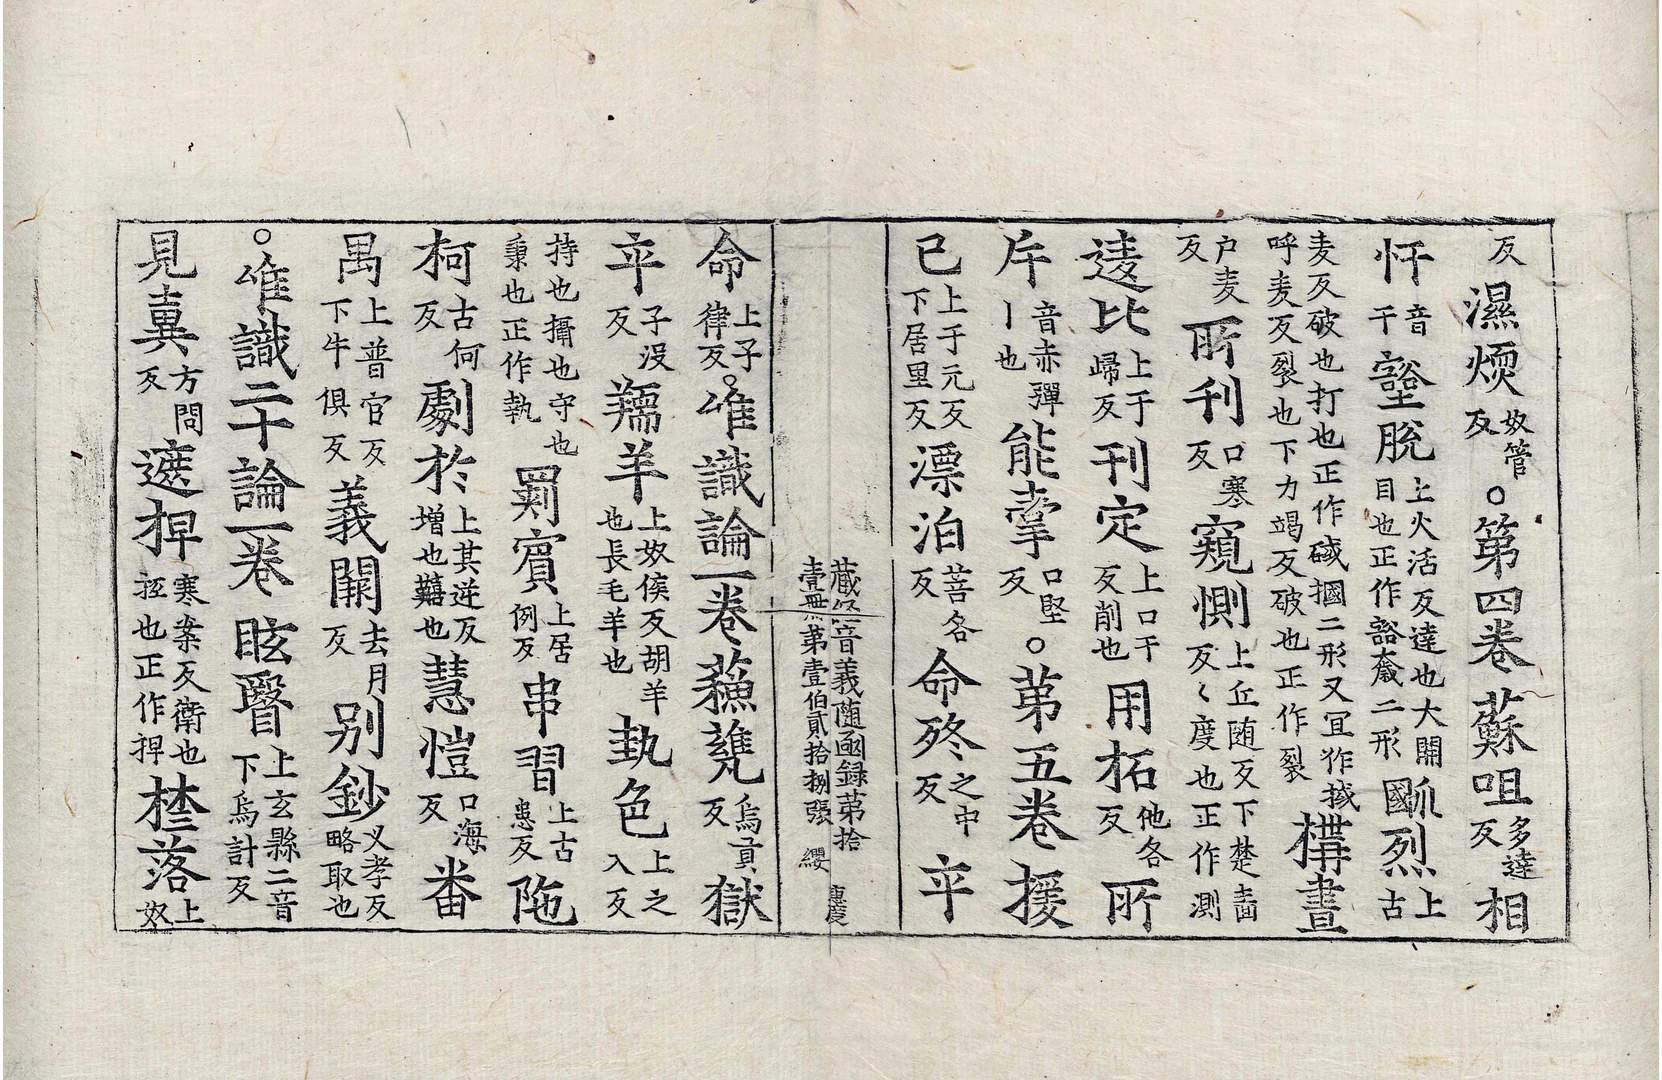 反濕煗奴管反○第四卷蘇呾多達反相
忓音干豁脫上火活反達也大開目也正作豁奯二形𠛎烈上古
麦反破也打也正作𢧵摑二形又冝作㧽呼麦反裂也下力竭反破也正作裂構畫
户麦反所刊口寒反窺惻上丘随反下楚啬反〻度也正作測
逵比上于歸反刊定上口干反削也用拓他各反所
斥音赤彈丨也能掔口堅反○苐五卷援
已上于元反下居里反漂泊菩各反命終之中反卒
藏經音義随函錄苐拾壹冊第壹伯貳拾捌張纓惠度
命上子律反○唯識論一卷蘓甕烏貢反獄
卒子没反羺羊上奴侯反胡羊也長毛羊也執色上之入反
持也攝也守也秉也正作執罽賓上居例反串習上古患反陁
柯古何反劇於上其逆反增也囏也慧愷口海反番
禺上普官反下牛俱反義闕去月反别鈔义孝反略取也
○唯識二十論一卷眩瞖上玄縣二音下烏計反
見糞方問反遮捍寒案反衛也拒也正作捍埜落上奴